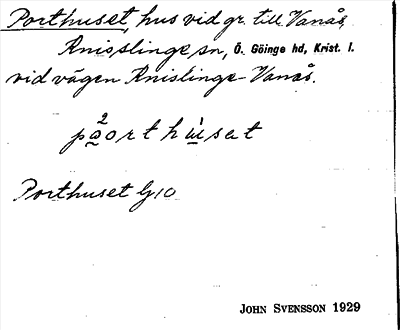 Porthuset, hus vid gr. till Vanås,
Knisslinge sn, Ö. Göinge hd, Krist. l.
vid vägen Knislinge-Vanås.
2
påorthùsat
Porthuset Gj10
JOHN SVENSSON 1929